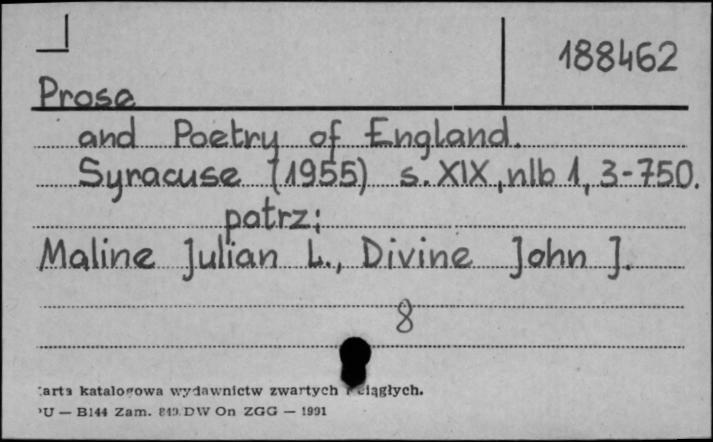 188462
Prose
and Poetry of England.
Syracuse (1955) s. XIX, nlb 1, 3-750.
patrz:
Maline Julian L., Divine John J.
8
arta katalogowa wydawnictw zwartych ciągłych.
U — B144 Zam. DW On ZGG — 1991